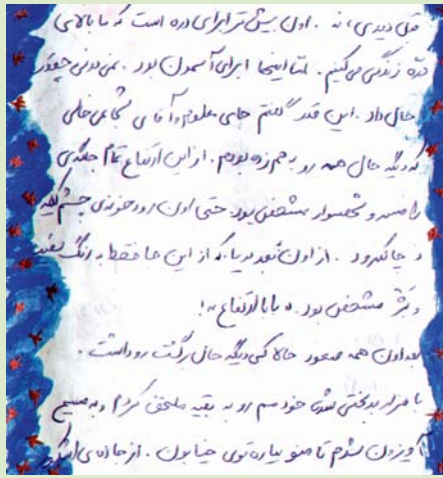 قبل دیدی، نه. اون بیش‌تر ابرای دره است که ما بالای
دره زندگی می‌کنیم. امّا اینجا ابرای آسمون بود. نمی‌دونی چقدر
حال داد. این قدر گفتم جای معلوم و آقای شجاعی خالی
که دیگه حال همه رو به هم زده بودم. از این ارتفاع تمام جلگه‌ی
رامسر و شهسوار مشخص بود حتی اون رودخونه‌ی چشم کیله
و چالکرود. از اون به بعد دریا که از این جا فقط به رنگ سفید
و بنفش مشخص بود. ه بابا ارتفاع!
بعد اون همه صعود حالا کی دیگه حال برگشت رو داشت.
با هزار بدبختی خودم رو به بقیه ملحق کردم و به مسیح
آویزون شدم تا منو بیاره توی خیابون. از جاده‌ی